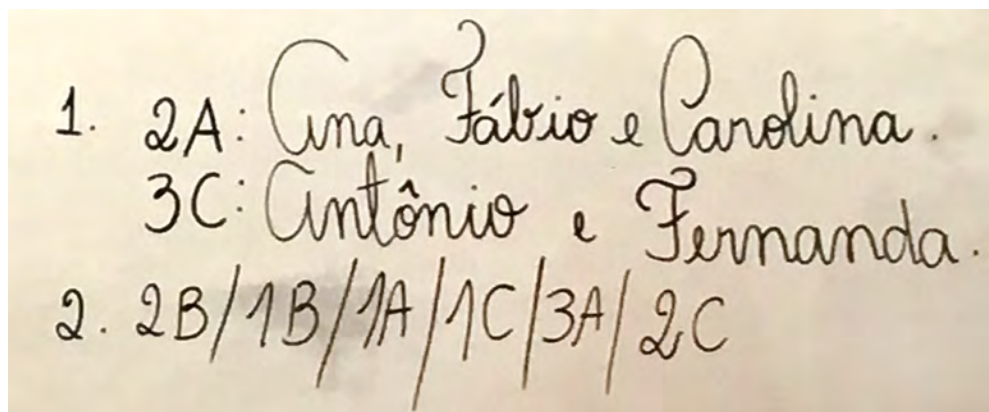 1. 2A: Ana, Fábio e Carolina.
3C: Antônio e Fernanda.
2. 2B/1B/1A/1C/3A/2C